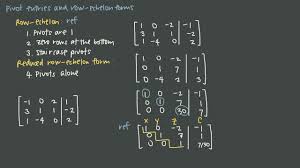 Pivot entries and row-echelon forms
Row-echelon: ref
1. Pivots are 1
2. Zero rows at the bottom
3. Staircase pivots
Reduced row-echelon form
4. Pivots alone
-1 0 2 | 1
3 1 1 | -2
1 -4 0 | 2
1 0 -2 | -1
3 1 1 | -2
1 -4 0 | 2
1 0 -2 | -1
0 1 7 | 1
0 -4 2 | 3
1 0 -2 | -1
0 1 7 | 1
0 0 30 | 7
x y z c
ref
1 0 -2 | -1
0 1 7 | 1
0 0 1 | 7/30